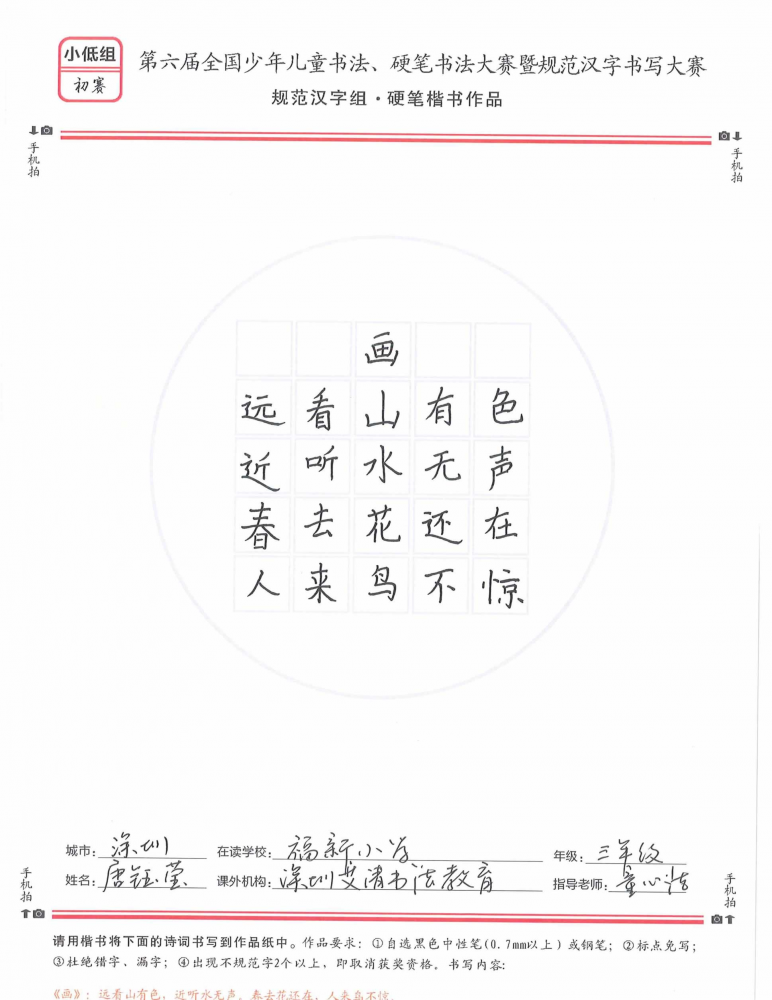 小低组
初赛
第六届全国少年儿童书法、硬笔书法大赛暨规范汉字书写大赛
规范汉字组·硬笔楷书作品
手机拍
手机拍
画
远看山有色
近听水无声
春去花还在
人来鸟不惊
城市：深圳 在读学校：福新小学 年级：三年级
姓名：唐钰莹 课外机构：深圳艾清书法教育 指导老师：童心洁
手机拍
手机拍
请用楷书将下面的诗词书写到作品纸中。作品要求：①自选黑色中性笔(0.7mm以上）或钢笔；②标点免写；
③杜绝错字、漏字；④出现不规范字2个以上，即取消获奖资格。书写内容：
《画》：远看山有色，近听水无声。春去花还在，人来鸟不惊。